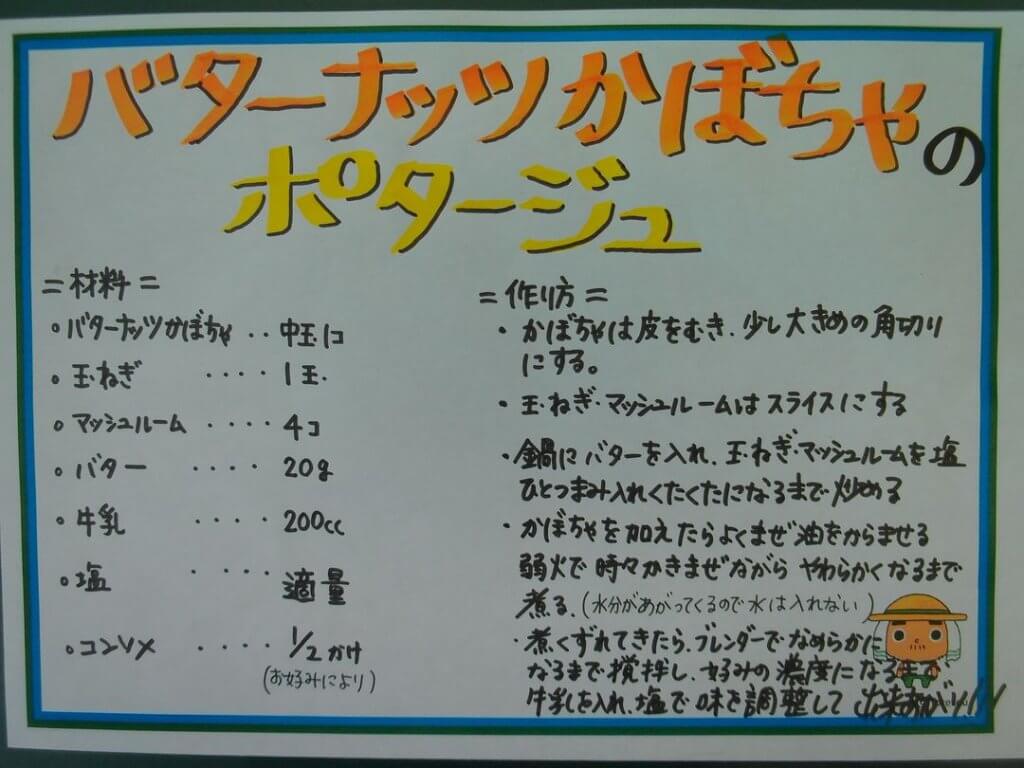 バターナッツかぼちゃの
ポタージュ
=材料=
。バターナッツかぼちゃ ‥ 中玉1コ
。玉ねぎ ・・・・ 1玉.
。マッシュルーム ・・・・ 4コ
。バター ・・・・ 20g
。牛乳 ・・・・ 200cc
。塩 ・・・・ 適量
。コンソメ ・・・・ 1/2かけ
(お好みにより)
=作り方=
・かぼちゃは皮をむき、少し大きめの角切り
にする。
・玉ねぎ・マッシュルームはスライスにする
・鍋にバターを入れ、玉ねぎ・マッシュルームを塩
ひとつまみ入れくたくたになるまで炒める
・かぼちゃを加えたらよくまぜ油をからませる
弱火で時々かきまぜながら やわらかくなるまで
煮る。(水分があがってくるので水は入れない)
・煮くずれてきたら、ブレンダーでなめらかに
なるまで撹拌し、好みの濃度になるまで
牛乳を入れ、塩で味を調整して 出来あがり!!!